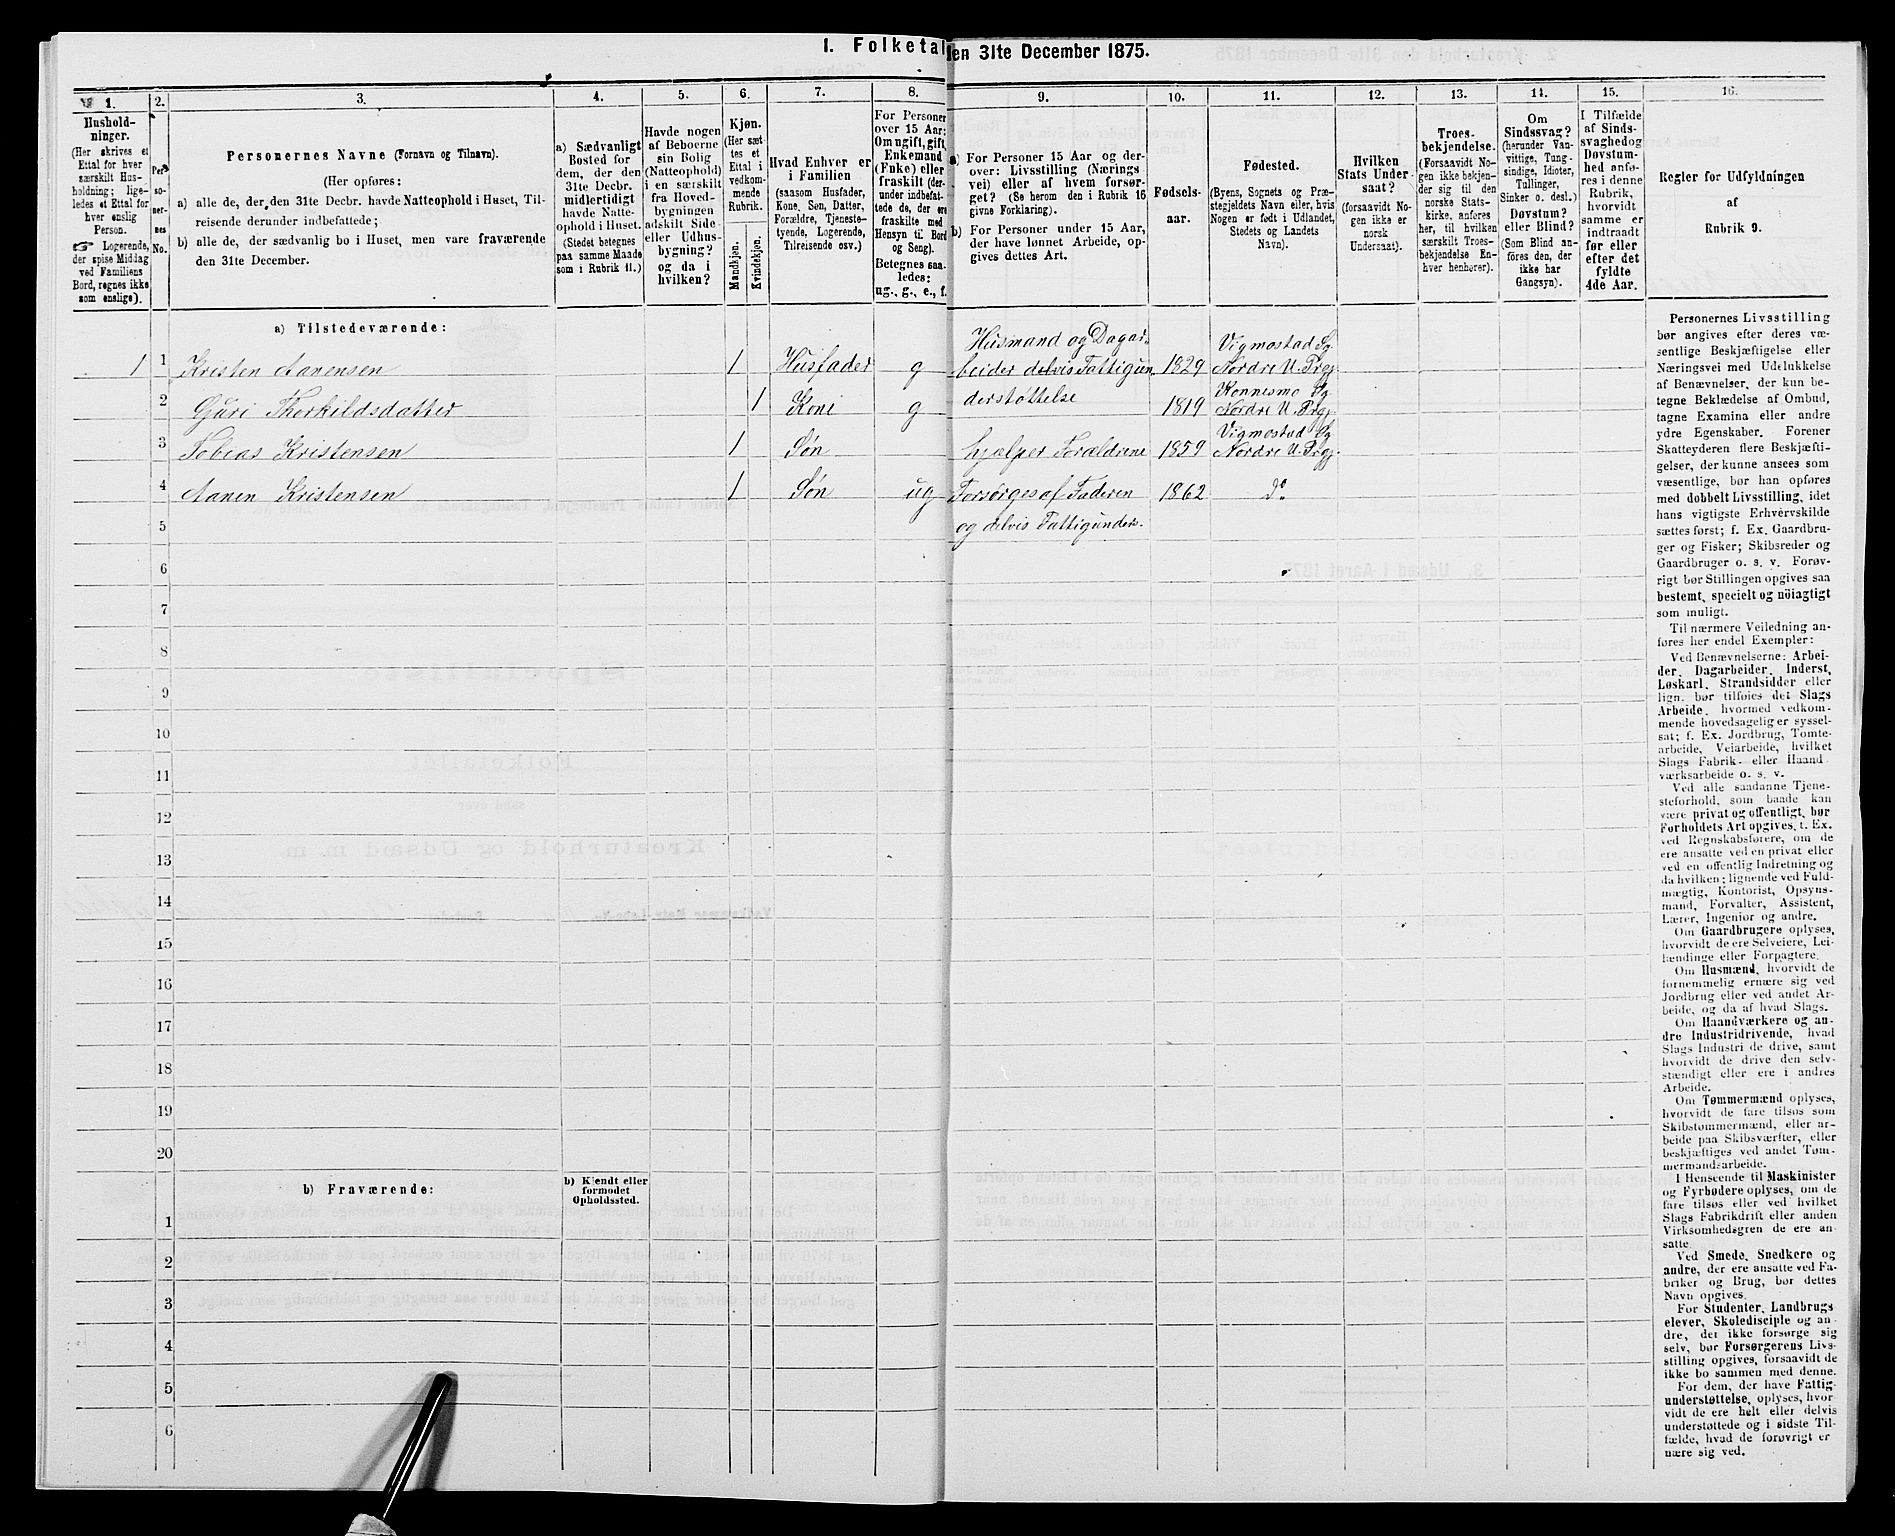 1. Folketal
den 31te December 1875.
1.
Hushold-
ninger.
(Her skrives et
Ettal for hver
særskilt Hus-
holdning; lige-
ledes et Ettal for
hver enslig
Person.
☞ Logerende,
der spise Middag
ved Familiens
Bord, regnes ikke
som enslige).
2.
Per-
so-
ner-
nes
No.
3.
Personernes Navne (Fornavn og Tilnavn).
(Her opføres:
a) alle de, der den 31te Decbr. havde Natteophold i Huset, Til-
reisende derunder indbefattede;
b) alle de, der sædvanlig bo i Huset, men vare fraværende
den 31te December.
4.
a) Sædvanligt
Bosted for
dem, der den
31te Decbr.
midlertidigt
havde Natte-
ophold i Huset.
(Stedet betegnes
paa samme Maade
som i Rubrik 11.)
5.
Havde nogen
af Beboerne
sin Bolig
(Natteophold)
i en særskilt
fra Hoved-
bygningen
adskilt Side-
eller Udhus-
bygning?
og da i
hvilken?
6.
Kjøn.
(Her sæt-
tes et
Ettal i
vedkom-
mende
Rubrik.
Mandkjøn.
Kvindekjøn.
7.
Hvad Enhver er
i Familien
(saasom Husfader,
Kone, Søn, Datter,
Forældre, Tjeneste-
tyende, Logerende,
Tilreisende osv.)
8.
For Personer
over 15 Aar:
Om ugift, gift,
Enkemand
(Enke) eller
fraskilt (der-
under indbefat-
tede de, der ere
fraskilte med
Hensyn til Bord
og Seng).
Betegnes saa-
ledes:
ug., g., e., f.
9.
a) For Personer 15 Aar og der-
over: Livsstilling (Nærings-
vei) eller af hvem forsør-
get? (Se herom den i Rubrik 16
givne Forklaring).
b) For Personer under 15 Aar,
der have lønnet Arbeide, op-
gives dettes Art.
10.
Fødsels-
aar.
11.
Fødested.
(Byens, Sognets og Præ-
stegjeldets Navn eller, hvis
Nogen er født i Udlandet,
Stedets og Landets
Navn).
12.
Hvilken
Stats Under-
saat?
(forsaavidt No-
gen ikke er
norsk
Undersaat).
13.
Troes-
bekjendelse.
(Forsaavidt No-
gen ikke bekjen-
der sig til den
norske Stats-
kirke, anføres
her, til hvilken
særskilt Troes-
bekjendelse En-
hver henhører).
14.
Om
Sindssvag?
(herunder Van-
vittige, Tung-
sindige, Idioter,
Tullinger,
Sinker o. desl.)
Døvstum?
eller Blind?
(Som Blind an-
føres den, der
ikke har
Gangsyn).
15.
I Tilfælde
af Sinds-
svaghed og
Døvstum-
hed anfø-
res i denne
Rubrik,
hvorvidt
samme er
indtraadt
før eller
efter det
fyldte
4de Aar.
16.
Regler for Udfyldningen
af
Rubrik 9.
a) Tilstedeværende:
1 1 Kristen Aanensen 1 Husfader g Husmand og Dagar-
beider delvis Fattigun- 1829 Vigmostad Sg.
Nordre U. Prgj.
2 Guri Therkildsdatter 1 Kone g derstøttelse 1819 Konnesmo Sg.
Nordre U. Prgj.
3 Tobias Kristensen 1 Søn hjælper Forældrene 1859 Vigmostad Sg.
Nordre U. Prgj.
4 Aanen Kristensen 1 Søn ug Forsørges af Faderen 1862 do
5 og delvis Fattigunders.
6
7
8
9
10
11
12
13
14
15
16
17
18
19
20
b) Fraværende:
b) Kjendt eller
formodet
Opholdssted.
1
2
3
4
5
6
Personernes Livsstilling
bør angives efter deres væ-
sentlige Beskjæftigelse eller
Næringsvei med Udelukkelse
af Benævnelser, der kun be-
tegne Beklædelse af Ombud,
tagne Examina eller andre
ydre Egenskaber. Forener
Skatteyderen flere Beskjæfti-
gelser, der kunne ansees som
væsentlige, bør han opføres
med dobbelt Livsstilling, idet
hans vigtigste Erhvervskilde
sættes først; f. Ex. Gaardbru-
ger og Fisker; Skibsreder og
Gaardbruger o. s. v. Forøv-
rigt bør Stillingen opgives saa
bestemt, specielt og nöiagtigt
som muligt.
Til nærmere Veiledning an-
føres her endel Exempler:
Ved Benævnelserne: Arbei-
der, Dagarbeider, Inderst,
Løskarl, Strandsidder eller
lign. bør tilføies det Slags
Arbeide, hvormed vedkom-
mende hovedsagelig er syssel-
sat; f. Ex. Jordbrug, Tomte-
arbeide, Veiarbeide, hvilket
Slags Fabrik- eller Haand-
værksarbeide o. s. v.
Ved alle saadanne Tjene-
steforhold, som baade kan
være privat og offentligt, bør
Forholdets Art opgives, t. Ex.
ved Regnskabsførere, om de
ere ansatte ved en privat eller
ved en offentlig Indretning og
da hvilken; lignende ved Fuld-
mægtig, Kontorist, Opsyns-
mand, Forvalter, Assistent,
Lærer, Ingeniør og andre.
Om Gaardbrugere oplyses,
hvorvidt de ere Selveiere, Lei-
lændinge eller Forpagtere.
Om Husmænd, hvorvidt de
fornemmelig ernære sig ved
Jordbrug eller ved andet Ar-
beide, og da af hvad Slags.
Om Haandværkere og an-
dre Industridrivende, hvad
Slags Industri de drive, samt
hvorvidt de drive den selv-
stændigt eller ere i andres
Arbeide.
Om Tømmermænd oplyses,
hvorvidt de fare tilsøs som
Skibstømmermænd, eller ar-
beide paa Skibsværfter, eller
beskjæftiges ved andet Tøm-
mermandsarbeide.
I Henseende til Maskinister
og Fyrbødere oplyses, om de
fare tilsøs eller ved hvilket
Slags Fabrikdrift eller anden
Virksomhedsgren de ere an-
satte.
Ved Smede, Snedkere og
andre, der ere ansatte ved Fa-
briker og Brug, bør dettes
Navn opgives.
For Studenter, Landbrugs-
elever, Skoledisciple og an-
dre, der ikke forsørge sig
selv, bør Forsørgerens Livs-
stilling opgives, forsaavidt de
ikke bo sammen med denne.
For dem, der have Fattig-
understøttelse, oplyses, hvor-
vidt de ere helt eller delvis
understøttede og i sidste Til-
fælde, hvad de forøvrigt er-
nære sig ved.